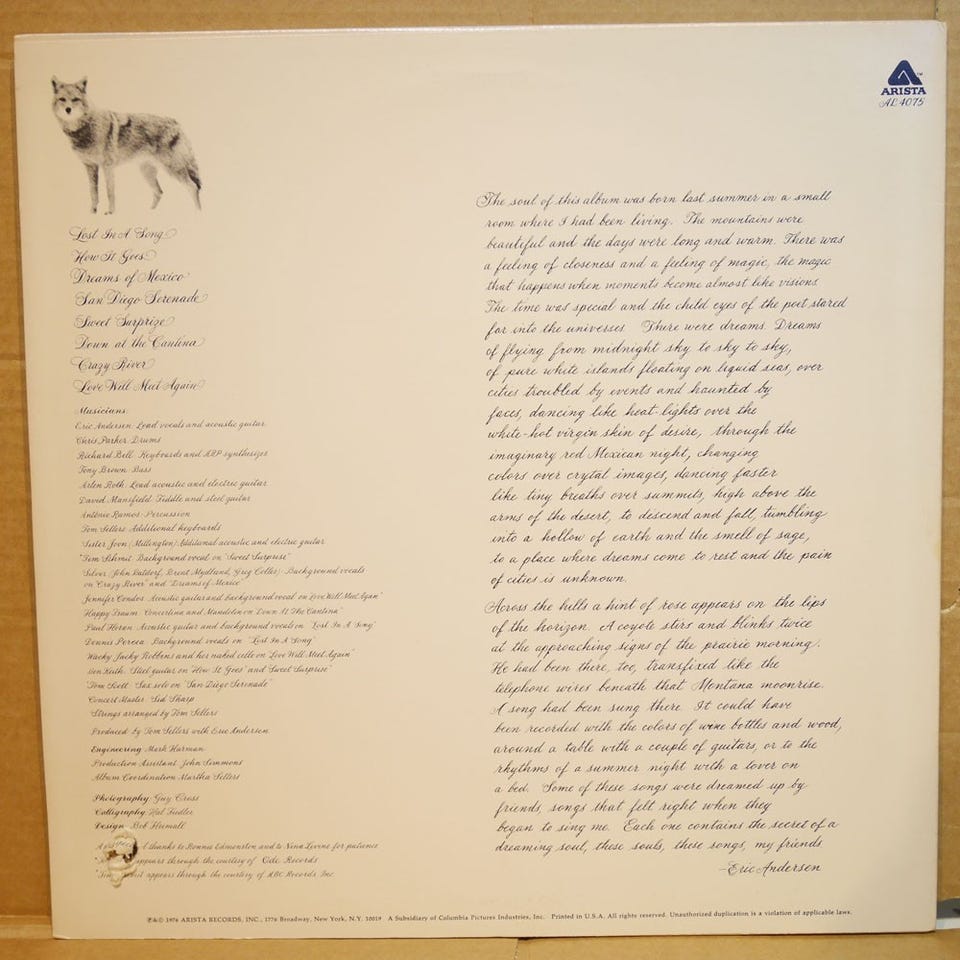 ARISTA
AL 4075
Lost In A Song
How It Goes
Dreams of Mexico
San Diego Serenade
Sweet Surprize
Down at the Cantina
Crazy River
Love Will Meet Again
Musicians:
Eric Andersen: Lead vocals and acoustic guitar
Chris Parker: Drums
Richard Bell: Keyboards and ARP synthesizer
Tony Brown: Bass
Arlen Roth: Lead acoustic and electric guitar
David Mansfield: Fiddle and steel guitar
Antônio Ramos: Percussion
Tom Sellers: Additional keyboards
Sister Joon (Millington): Additional acoustic and electric guitar
*Tom Schmit: Background vocal on "Sweet Surprise"
Silver (John Batdorf, Brent Mydland, Greg Collier): Background vocals
on "Crazy River" and "Dreams of Mexico"
Jennifer Condos: Acoustic guitar and background vocal on "Love Will Meet Again"
Happy Traum: Concertina and Mandolin on "Down At The Cantina"
Paul Horan: Acoustic guitar and background vocals on "Lost In A Song"
Dennis Background vocals on "Lost In A Song"
Wacky Jacky Robbins and her naked cello on "Love Will Meet Again"
Ben Keith: Steel guitar on "How It Goes" and "Sweet Surprise"
*Tom Scott: Sax solo on "San Diego Serenade"
Concert Master: Sid Sharp
Strings arranged by Tom Sellers
Produced by Tom Sellers with Eric Andersen
Engineering: Mark Harman
Production Assistant: John Simmons
Album Coordination: Martha Sellers
Photography: Guy Cross
Calligraphy: Hal Fiedler
Design: Bob Heimall
thanks to Bonnie Edmonston and to Nina Levine for patience
appears through the courtesy of Ode Records
appears through the courtesy of ABC Records, Inc.
The soul of this album was born last summer in a small
room where I had been living. The mountains were
beautiful and the days were long and warm. There was
a feeling of closeness and a feeling of magic, the magic
that happens when moments become almost like visions.
The time was special and the child eyes of the poet stared
far into the universes. There were dreams. Dreams
of flying from midnight sky to sky to sky,
of pure white islands floating on liquid seas, over
cities troubled by events and haunted by
faces, dancing like heat-lights over the
white-hot virgin skin of desire, through the
imaginary red Mexican night, changing
colors over crytal images, dancing faster
like tiny breaths over summits, high above the
arms of the desert, to descend and fall, tumbling
into a hollow of earth and the smell of sage,
to a place where dreams come to rest and the pain
of cities is unknown.
Across the hills a hint of rose appears on the lips
of the horizon. A coyote stirs and blinks twice
at the approaching signs of the prairie morning.
He had been there, too, transfixed like the
telephone wires beneath that Montana moonrise.
A song had been sung there. It could have
been recorded with the colors of wine bottles and wood,
around a table with a couple of guitars, or to the
rhythms of a summer night with a lover on
a bed. Some of these songs were dreamed up by
friends, songs that felt right when they
began to sing me. Each one contains the secret of a
dreaming soul, these souls, these songs, my friends.
-Eric Andersen
℗&© 1976 ARISTA RECORDS, INC., 1776 Broadway, New York, N.Y. 10019 A Subsidiary of Columbia Pictures Industries, Inc. Printed in U.S.A. All rights reserved. Unauthorized duplication is a violation of applicable laws.